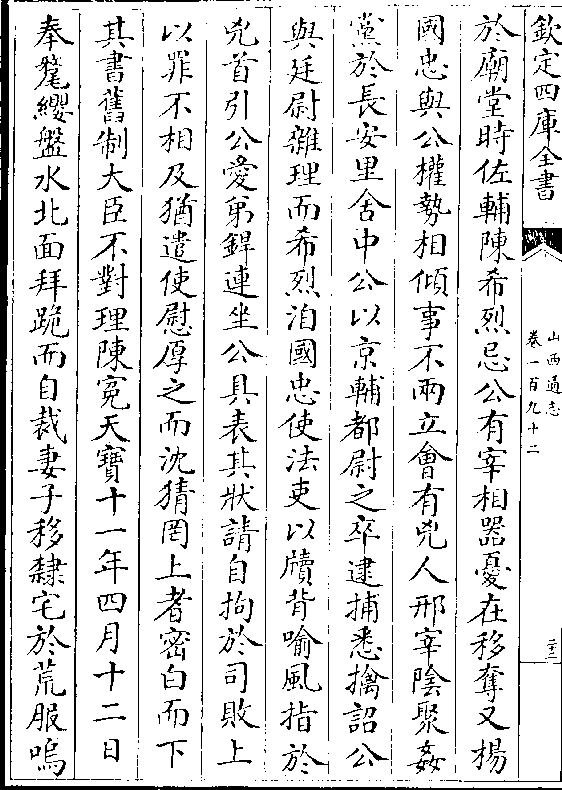 欽定四庫全書
山西通志
卷一百九十二
三十二
於廟堂時佐輔陳希烈忌公有宰相器憂在移奪又楊
國忠與公權勢相傾事不兩立會有兇人邢宰陰聚姦
黨於長安里舍中公以京輔都尉之卒逮捕悉擒詔公
與廷尉雜理而希烈洎國忠使法吏以牘背喻風指於
兇首引公愛弟銲連坐公具表其狀請自拘於司敗上
以罪不相及猶遣使慰厚之而沈猜罔上者密白而下
其書舊制大臣不對理陳寃天寶十一年四月十二日
奉氂纓盤水北面拜跪而自裁妻子移隸宅於荒服嗚